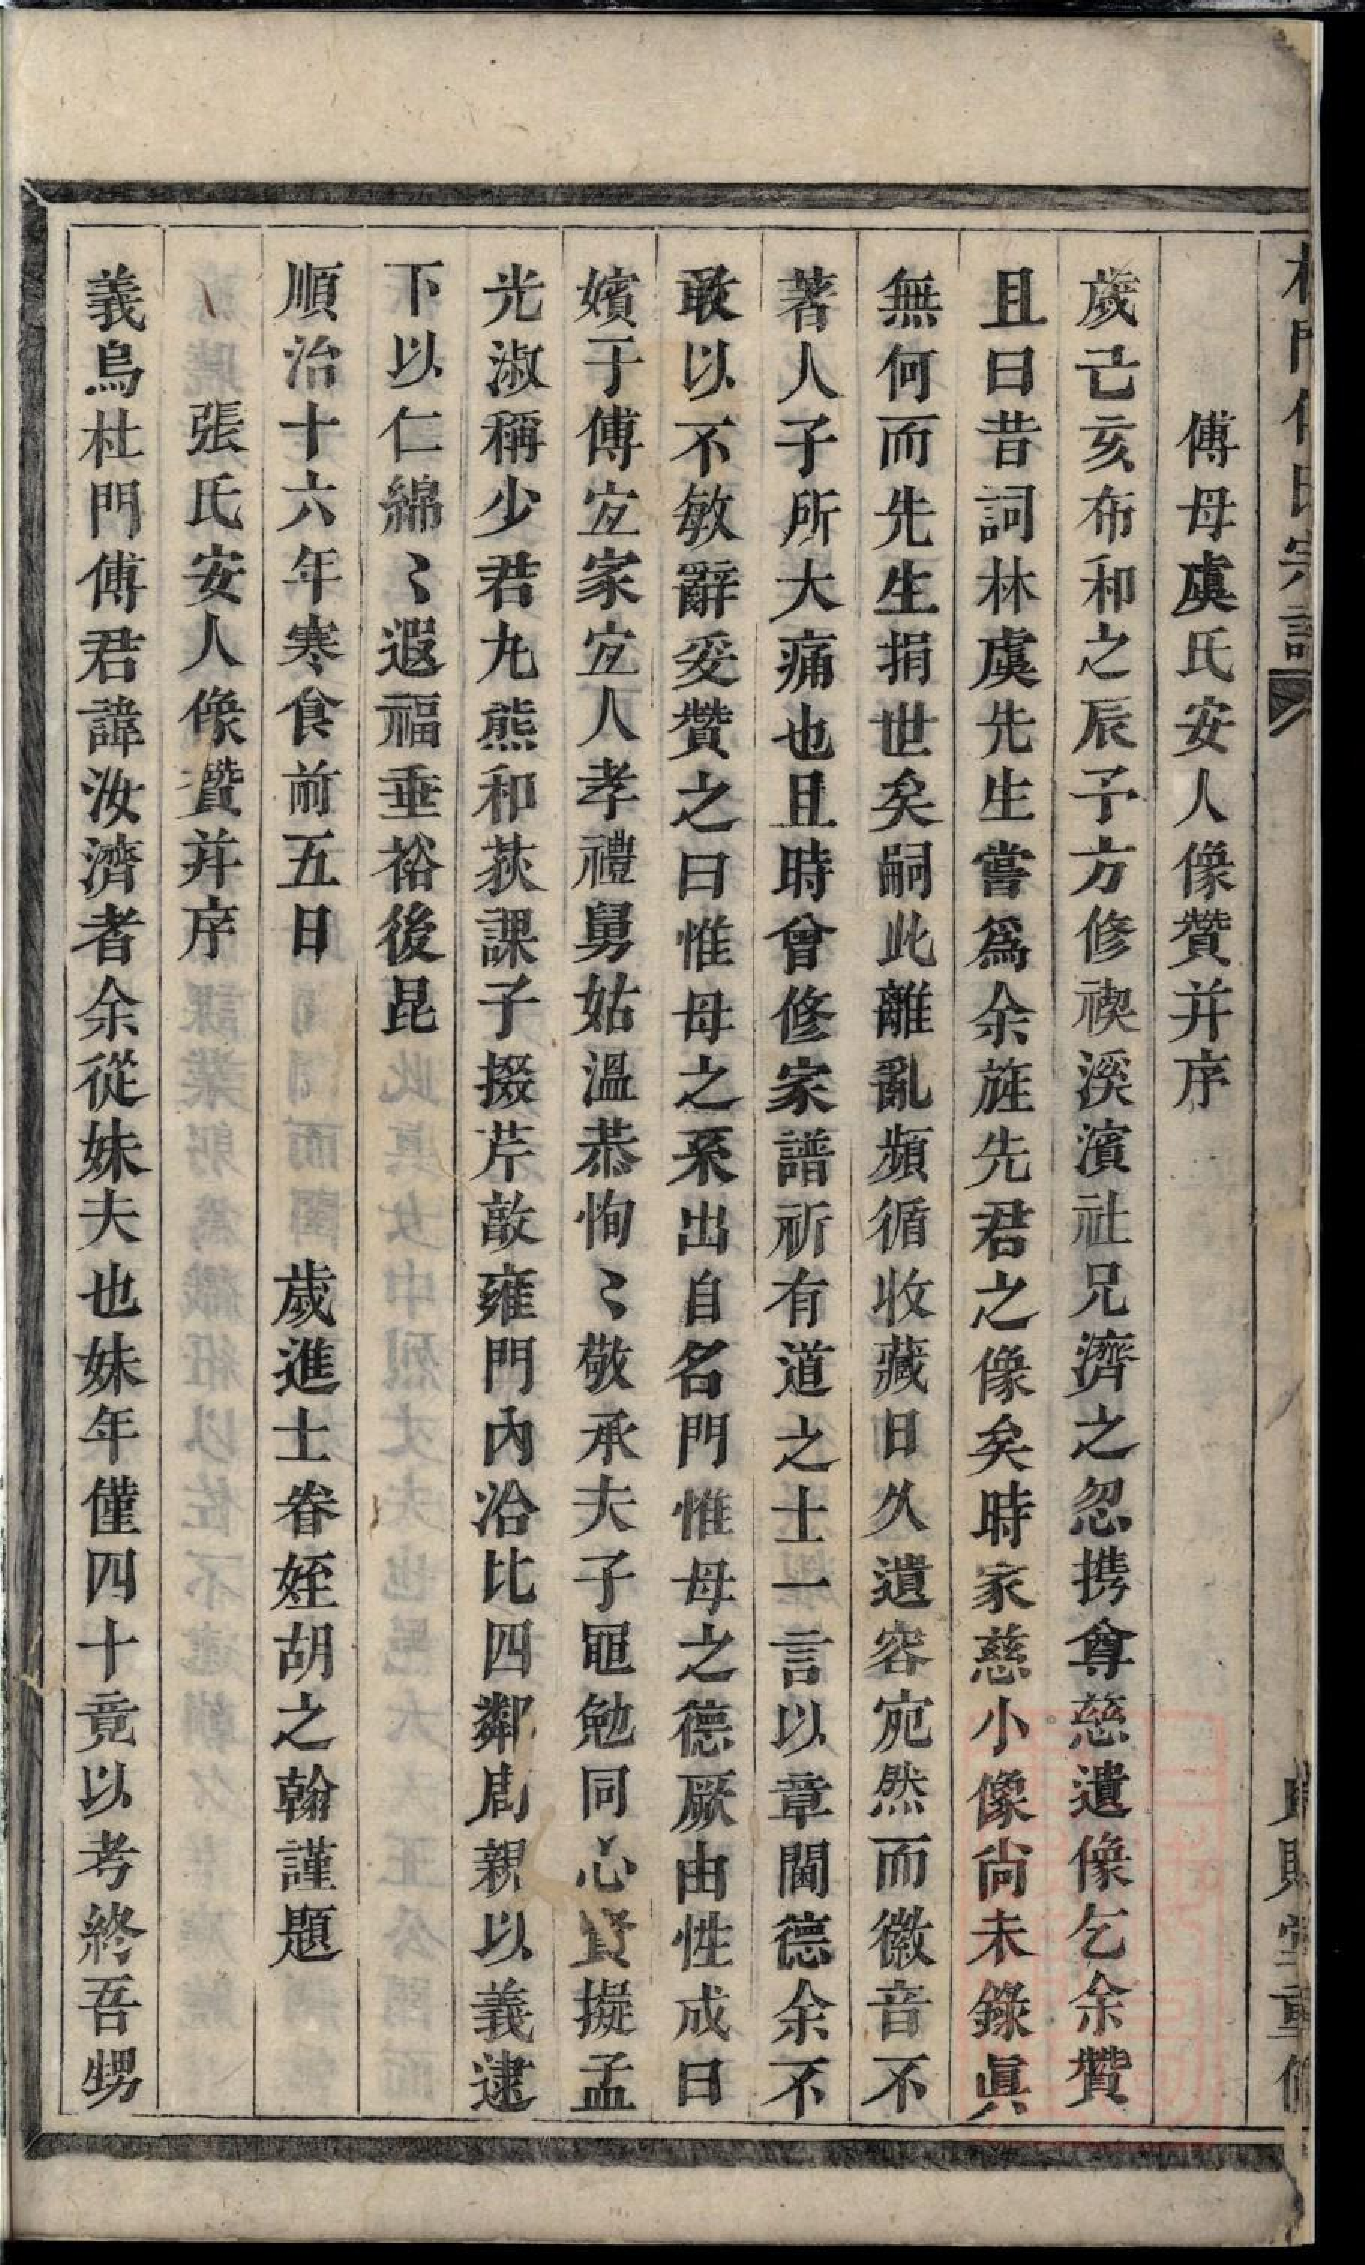 傅母虞氏安人像贊并序
歲己亥布和之辰予方修禊溪濱社兄濟之忽携尊慈遺像乞余贊
且曰昔詞林虞先生嘗爲余旌先君之像矣時家慈小像尙未錄眞
無何而先生捐世矣嗣此離亂頻循收藏日久遺容宛然而徽音不
著人子所大痛也且時曾修家譜祈有道之士一言以章閫德余不
敢以不敏辭爰贊之曰惟母之系出自名門惟母之德厥由性成曰
嬪于傅宜家宜人孝禮舅姑溫恭恂〻敬承夫子黽勉同心賢擬孟
光淑稱少君九熊和荻課子掇芹敲雍門內洽比四鄰周親以義逮
下以仁綿〻遐福垂裕後昆
順治十六年寒食前五日 歲進士眷姪胡之翰謹題
張氏安人像贊并序
義烏杜門傅君諱汝濟者余從妹夫也妹年僅四十竟以考終吾甥